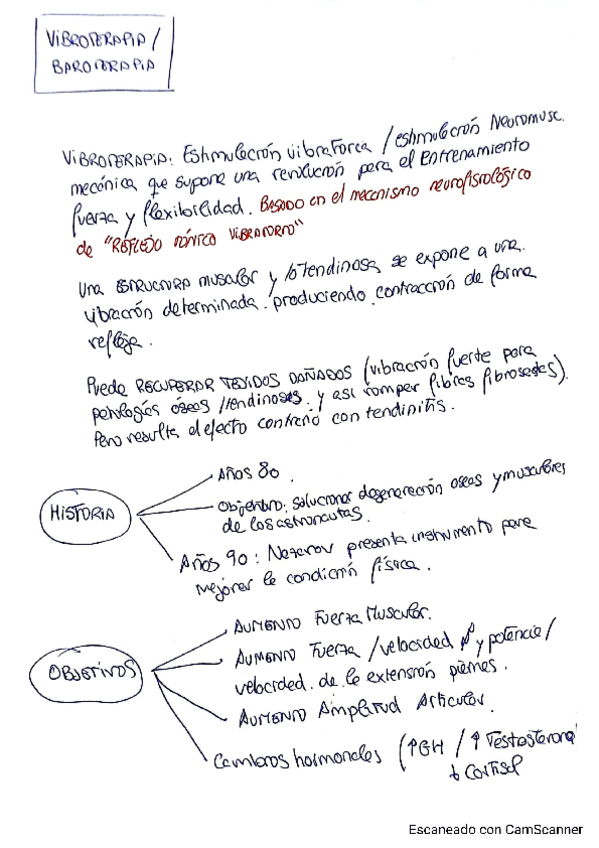 VIBROTERAPIA /
BAROTERAPIA
VIBROTERAPIA: Estimulación vibratoria / estimulación Neuromusc.
mecánica que supone una revolución para el Entrenamiento
fuerza y flexibilidad. BASADO en el mecanismo neurofisiológico
de "REFLEJO TÓNICO VIBRATORIO"
Una ESTRUCTURA muscular y /o tendinosa se expone a una
vibración determinada. produciendo contracción de forma
refleja.
Puede RECUPERAR TEJIDOS DAÑADOS (vibración fuerte para
patologías óseas /tendinosas. y así romper fibras fibrosadas).
Pero resulta el efecto contrario con tendinitis.
HISTORIA
AÑOS 80.
Objetivo: solucionar degeneración óseas y musculares
de los astronautas.
AÑOS 90: Nazarov presenta instrumento para
mejorar la condición física.
OBJETIVOS
AUMENTO Fuerza Muscular.
AUMENTO Fuerza /velocidad y potencia/
velocidad. de la extensión piernas.
AUMENTO Amplitud Articular.
Cambios hormonales (↑GH / ↑ Testosterona
↓ Cortisol
Escaneado con CamScanner